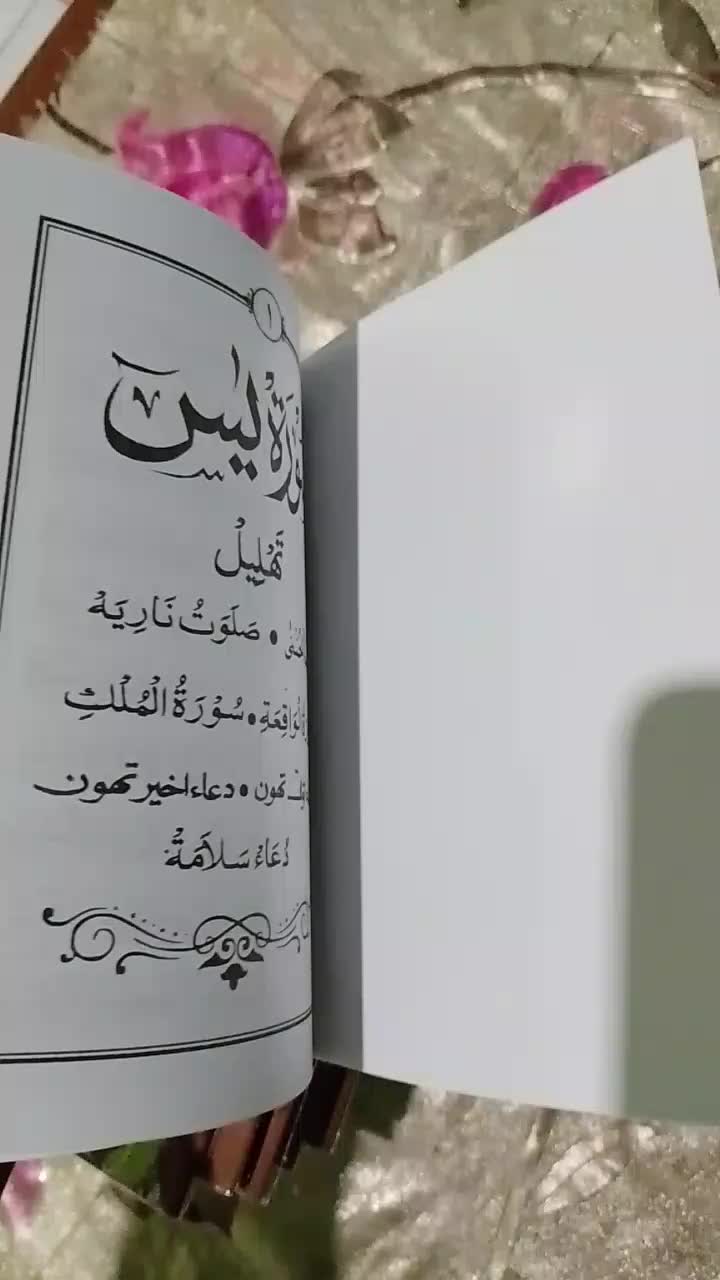 ١
يٰسٓ
تَهْلِيْل
• صَلَوَتُ نَارِيَهْ
الْوَاقِعَةِ • سُوْرَةُ الْمُلْكِ
تهون • دعاء اخير تهون
دُعَاءْ سَلَامَةْ